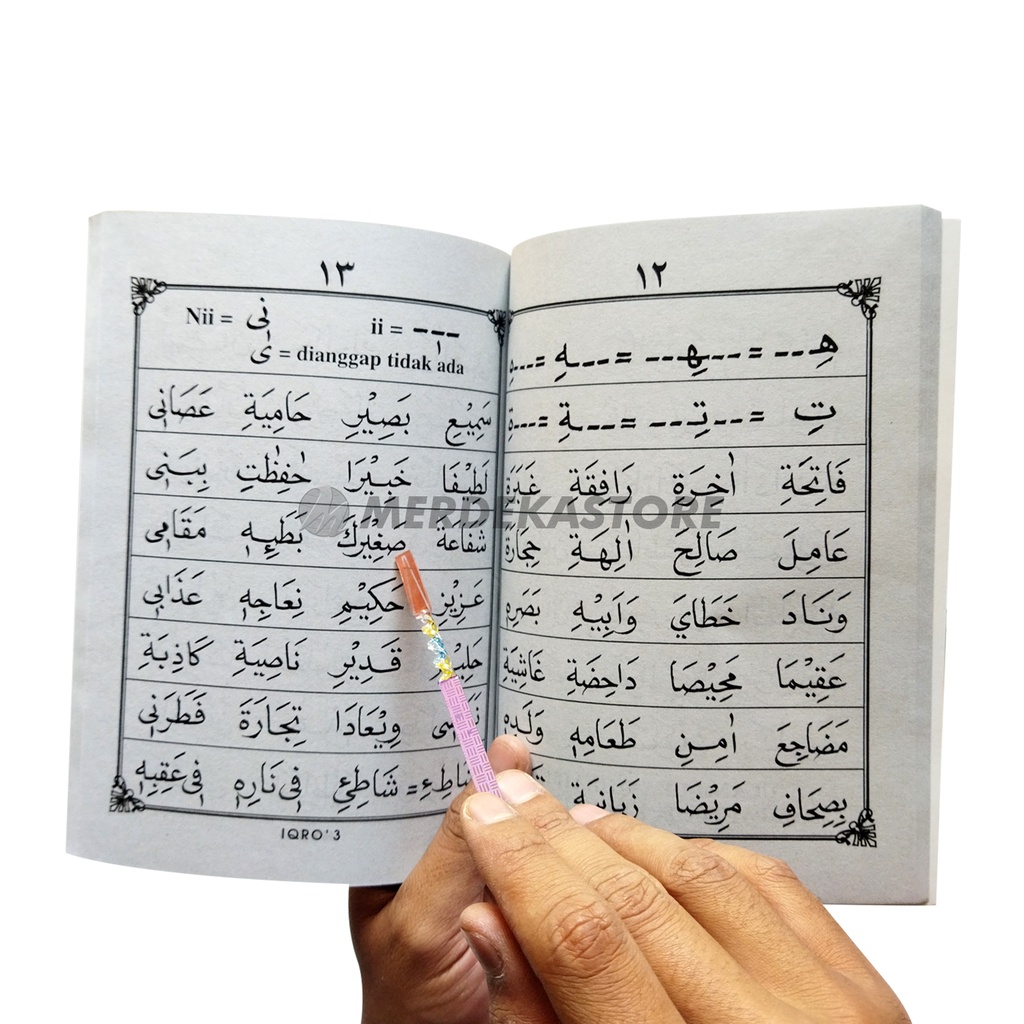 ١٢
هِـ ـ ـ = ـ ـ ـهِـ ـ ـ = ـ ـ ـهِ = ـ ـ ـهِ
تِ = ـ ـ ـتِـ ـ ـ = ـ ـ ـةِ = ـ ـ ـةِ
فَاتِحَةِ اٰخِرَةِ رَافِقَةِ غَبَرَةِ
عَامِلَ صَالِحَ اٰلِهَةِ حِجَارَةِ
وَنَادَ خَطَايَ وَاَبِيْهِ بَصَرِهِ
عَقِيْمَا مَحِيْصَا دَاحِضَةِ غَاشِيَةِ
مَضَاجِعَ اٰمِنِ طَعَامِهٖ وَلَدِهٖ
بِصِحَافِ مَرِيْضَا زَبَانِيَةِ
١٣
Nii = نِى ii = ـ ـ ـ
ى = dianggap tidak ada
سَمِيْعِ بَصِيْرِ حَامِيَةِ عَصَانِى
لَطِيْفَا خَبِيْرَا حٰفِظٰتِ بِبَنِى
شَفَاعَةَ صَغِيْرَكَ بَطَئِهٖ مَقَامِى
عَزِيْزِ حَكِيْمِ نِعَاجِهٖ عَذَابِى
قَدِيْرِ نَاصِيَةِ كَاذِبَةِ
وِيْعَادَا تِجَارَةَ فَطَرَنِى
شَاطِءِ = شَاطِئِ فِى نَارِهٖ فِى عَقِبِهٖ
IQRO' 3
MERDEKASTORE